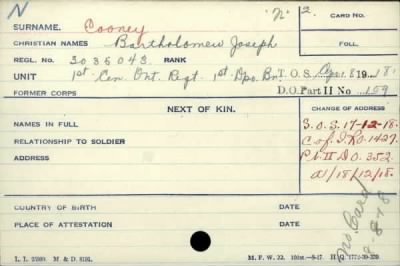 N "N" 2. CARD NO.
SURNAME. Cooney
CHRISTIAN NAMES Bartholomew Joseph FOLL.
REGL. NO. 3035043. RANK
UNIT 1st Cen. Ont. Regt. 1st Dpo. Bn. T.O.S. Apr. 8 19 18
FORMER CORPS D.O. Part II No 159
NEXT OF KIN. CHANGE OF ADDRESS
NAMES IN FULL S.O.S. 17-12-18.
RELATIONSHIP TO SOLDIER C of I.R.O. 1427.
ADDRESS Pt. II D.O. 352.
d/18/12/18.
COUNTRY OF BIRTH DATE
PLACE OF ATTESTATION DATE
No Card
M. & D. M. F. W. 22.